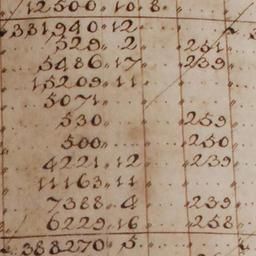 12500.10.8.
331940.12
529.2 251
5486.17 239
15209.11
5071
530 259
500 250
4221.12 239
11163.11
7388.4 239
6229.16 258
388270.5